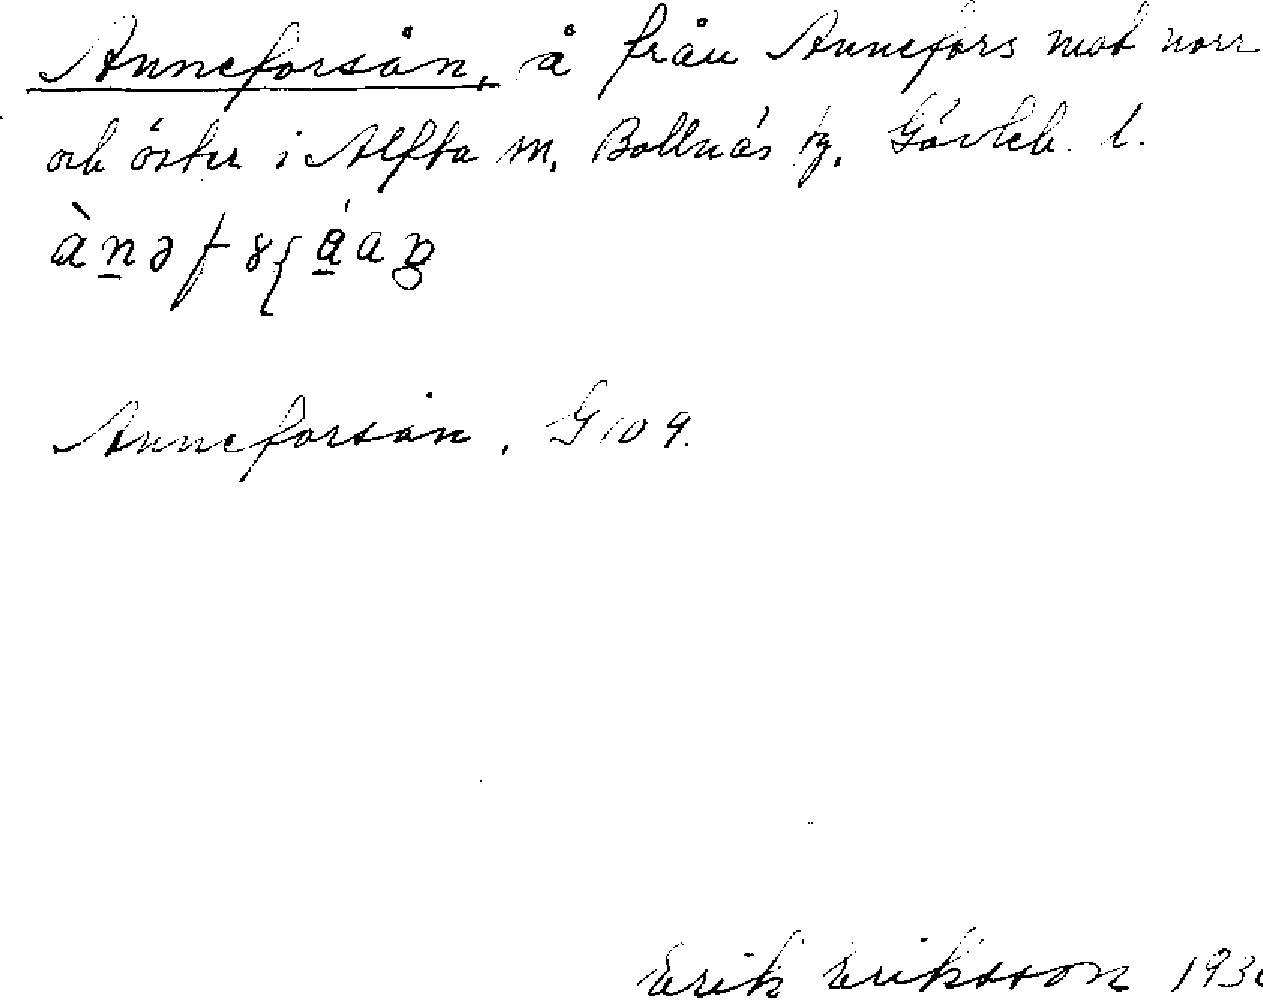 Anneforsån, å från Annefors mot norr
och öster i Alfta sn, Bollnäs tg. Gävleb. l.
Anneforsån, G 109.
Erik Eriksson 193